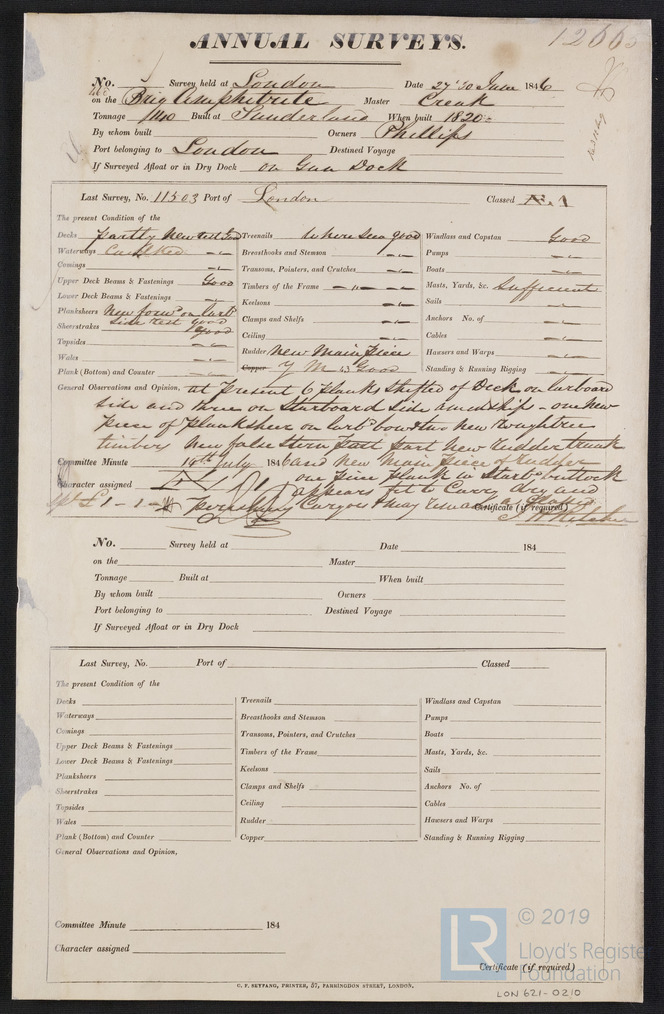 ANNUAL SURVEYS.
No. Survey held at London Date 27 & 30 June 1846
on the Brig Amphitrite Master Creak
Tonnage 140 Built at Sunderland When built 1820
By whom built Owners Phillips
Port belonging to London Destined Voyage
If Surveyed Afloat or in Dry Dock on Gun Dock
Last Survey, No. 11503 Port of London Classed Æ 1
The present Condition of the
Decks partly new rest Good
Waterways Caulked
Comings
Upper Deck Beams & Fastenings Good
Lower Deck Beams & Fastenings
Planksheers New on Larb
Sheerstrakes side rest good good
Topsides
Wales
Plank (Bottom) and Counter
Treenails Where seen good
Breasthooks and Stemson
Transoms, Pointers, and Crutches
Timbers of the Frame
Keelsons
Clamps and Shelfs
Ceiling
Rudder New Main Piece
Copper Y M 43 Good
Windlass and Capstan Good
Pumps
Boats
Masts, Yards, &c. Sufficient
Sails
Anchors No. of
Cables
Hawsers and Warps
Standing & Running Rigging
General Observations and Opinion, at present 6 planks shifted of Deck on larboard
side and three on Starboard side amidship - one new
piece of planksheer on larbd bow & two new Roughtree
timbers New false Stern Post part New Rudder trunk
Committee Minute 14th July 1846 and New Main Piece of Rudder
one plank in Starbd buttock
Character assigned appears fit to Carry dry and
£1-1- perishing Cargoes & may remain as Classed
Certificate (if required)
No. Survey held at Date 184
on the Master
Tonnage Built at When built
By whom built Owners
Port belonging to Destined Voyage
If Surveyed Afloat or in Dry Dock
Last Survey, No. Port of Classed
The present Condition of the
Decks
Waterways
Comings
Upper Deck Beams & Fastenings
Lower Deck Beams & Fastenings
Planksheers
Sheerstrakes
Topsides
Wales
Plank (Bottom) and Counter
Treenails
Breasthooks and Stemson
Transoms, Pointers, and Crutches
Timbers of the Frame
Keelsons
Clamps and Shelfs
Ceiling
Rudder
Copper
Windlass and Capstan
Pumps
Boats
Masts, Yards, &c.
Sails
Anchors No. of
Cables
Hawsers and Warps
Standing & Running Rigging
General Observations and Opinion,
Committee Minute 184
Character assigned
Certificate (if required)
C. F. SEYFANG, PRINTER, 57, FARRINGDON STREET, LONDON.
LR © 2019
Lloyd's Register
Foundation
LON 621-0210